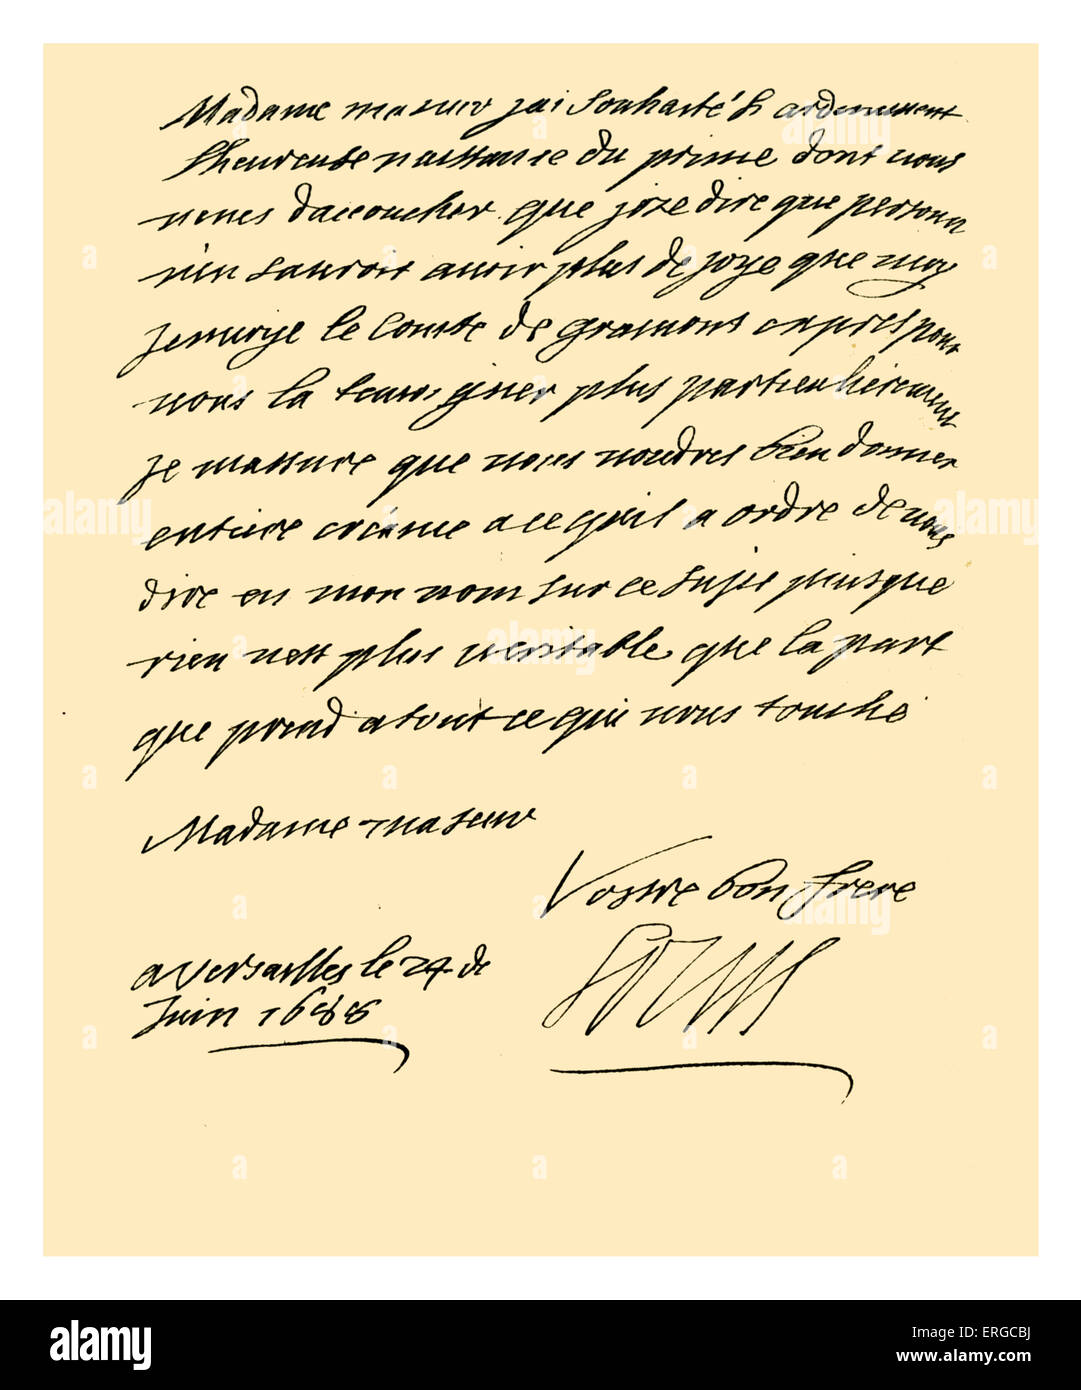 Madame ma seur jai souhaité si ardemment
lheureuse naissance du prince dont vous
venes daccoucher que jose dire que personne
nen sauroit avoir plus de joye que moy
jenvoye le Comte de gramont expres pour
vous la tesmoigner plus particulierement
je massure que vous voudres bien donner
entiere creance a ce quil a ordre de vous
dire en mon nom sur ce sujet puisque
rien nest plus veritable que la part
que prend a tout ce qui vous touche
Madame ma seur
Vostre bon frere
Louis
a Versailles le 24 de
Juin 1688
alamy
a
Image ID: ERGCBJ
www.alamy.com